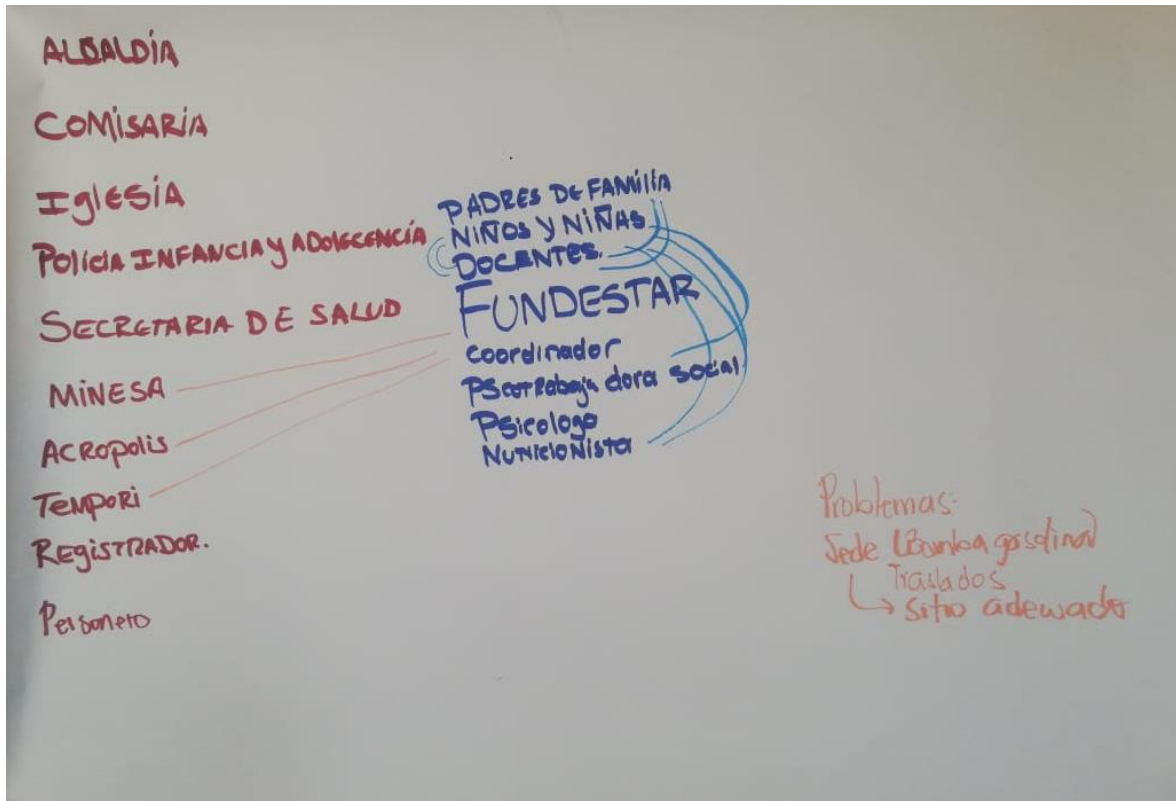 ALCALDÍA
COMISARÍA
IglESÍA
POlicíA INFANCIA y ADOLECENCÍA
SECRETARIA DE SALUD
MINESA
ACROPOlis
TEMPORI
REgiSTRADOR.
Personero
PADRES DE FAMILÍA
NIÑOS Y NIÑAS
DOCENTES.
FUNDESTAR
COORDINADOR
trabajadora social
Psicologo
NUTRICIONISTA
Problemas:
Sede (Bomba gasolina)
Traslados
Sitio adecuado